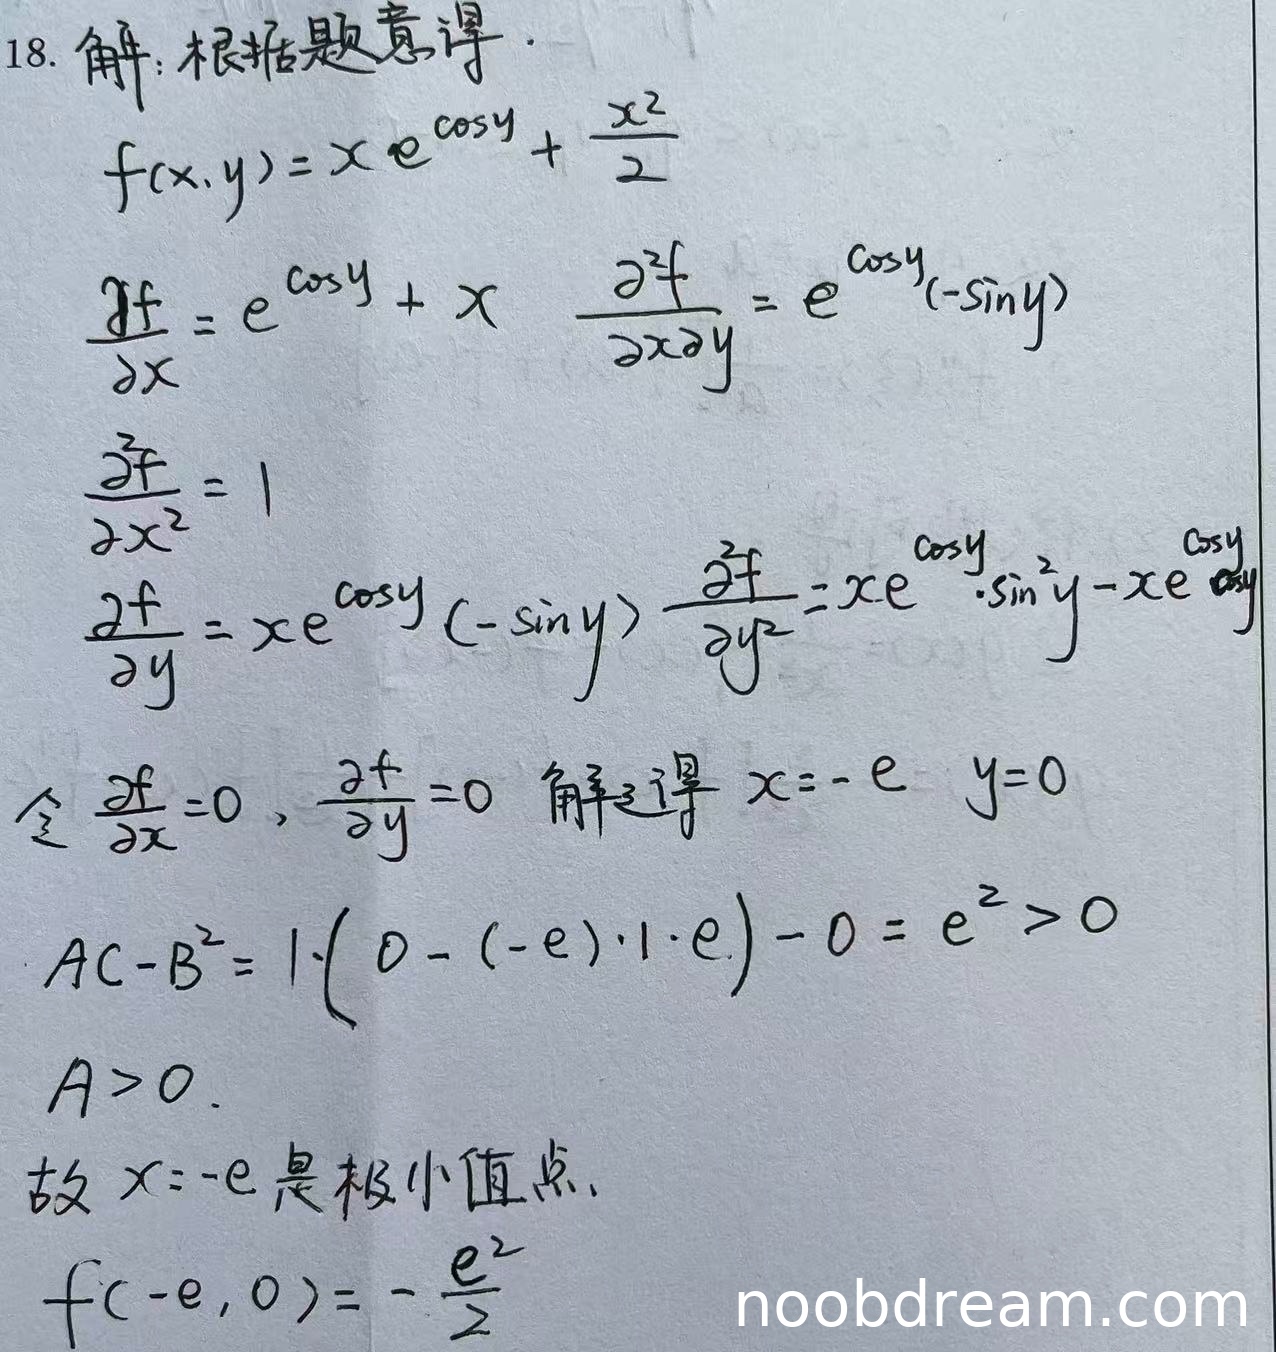 18. 解：根据题意得.
f(x,y)=xe^{cosy}+\frac{x^2}{2}
\frac{∂f}{∂x}=e^{cosy}+x \frac{∂^2f}{∂x∂y}=e^{cosy}(-siny)
\frac{∂^2f}{∂x^2}=1
\frac{∂f}{∂y}=xe^{cosy}(-siny) \frac{∂^2f}{∂y^2}=xe^{cosy}·sin^2y-xe^{cosy}cosy
令\frac{∂f}{∂x}=0，\frac{∂f}{∂y}=0 解之得 x=-e y=0
AC-B^2=1·(0-(-e)·1·e)-0=e^2>0
A>0.
故x=-e是极小值点.
f(-e,0)=-\frac{e^2}{2}
noobdream.com